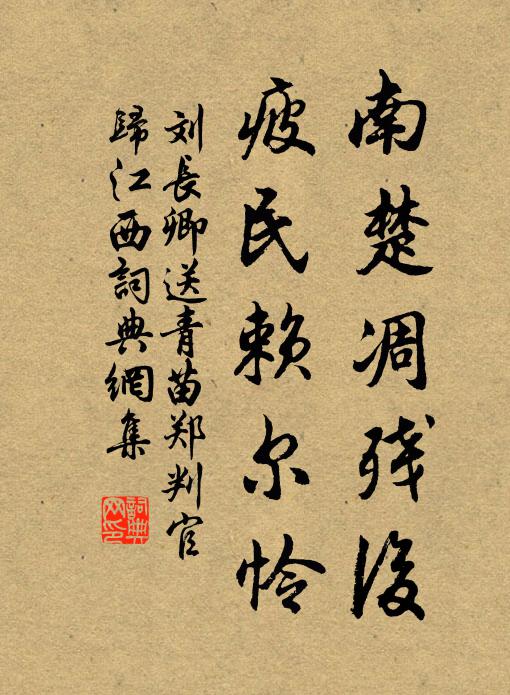 南楚凋残后
疲民赖尔怜
刘長卿送青苗郑判官
歸江西詞典網集
詞典网印